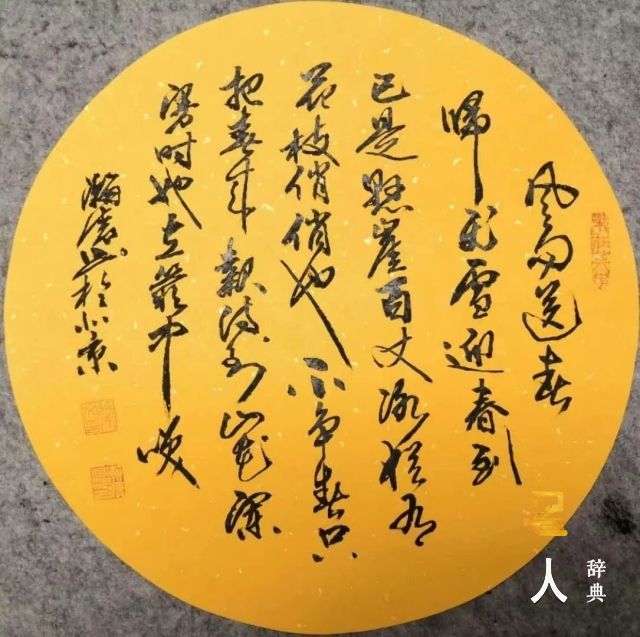 风雨送春
歸飛雪迎春到
已是懸崖百丈冰猶有
花枝俏俏也不争春只
把春来報待到山花爛
漫时她在叢中笑
瀚 书於北京
人
辞典